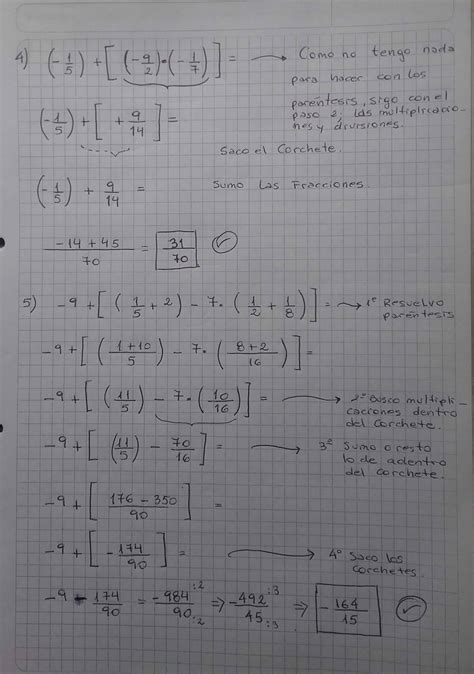 4) (-1/5) + [(-9/2)·(-1/7)] = → Como no tengo nada
para hacer con los
paréntesis, sigo con el
paso 2; las multiplicacio-
nes y divisiones.
(-1/5) + [+9/14] =
Saco el Corchete.
(-1/5) + 9/14 = Sumo las Fracciones.
(-14+45)/70 = 31/70 ✓
5) -9+[(1/5+2) - 7·(1/2+1/8)] = → 1º Resuelvo
paréntesis
-9+[((1+10)/5) - 7·((8+2)/16)] =
-9+[(11/5) - 7·(10/16)] = → 2º Busco multipli-
caciones dentro
del corchete.
-9+[(11/5) - 70/16] = → 3º Sumo o resto
lo de adentro
del corchete.
-9+[(176-350)/90] =
-9+[-174/90] = → 4º Saco los
corchetes.
-9 - 174/90 = -984:2/90:2 ⇒ -492:3/45:3 ⇒ -164/15 ✓